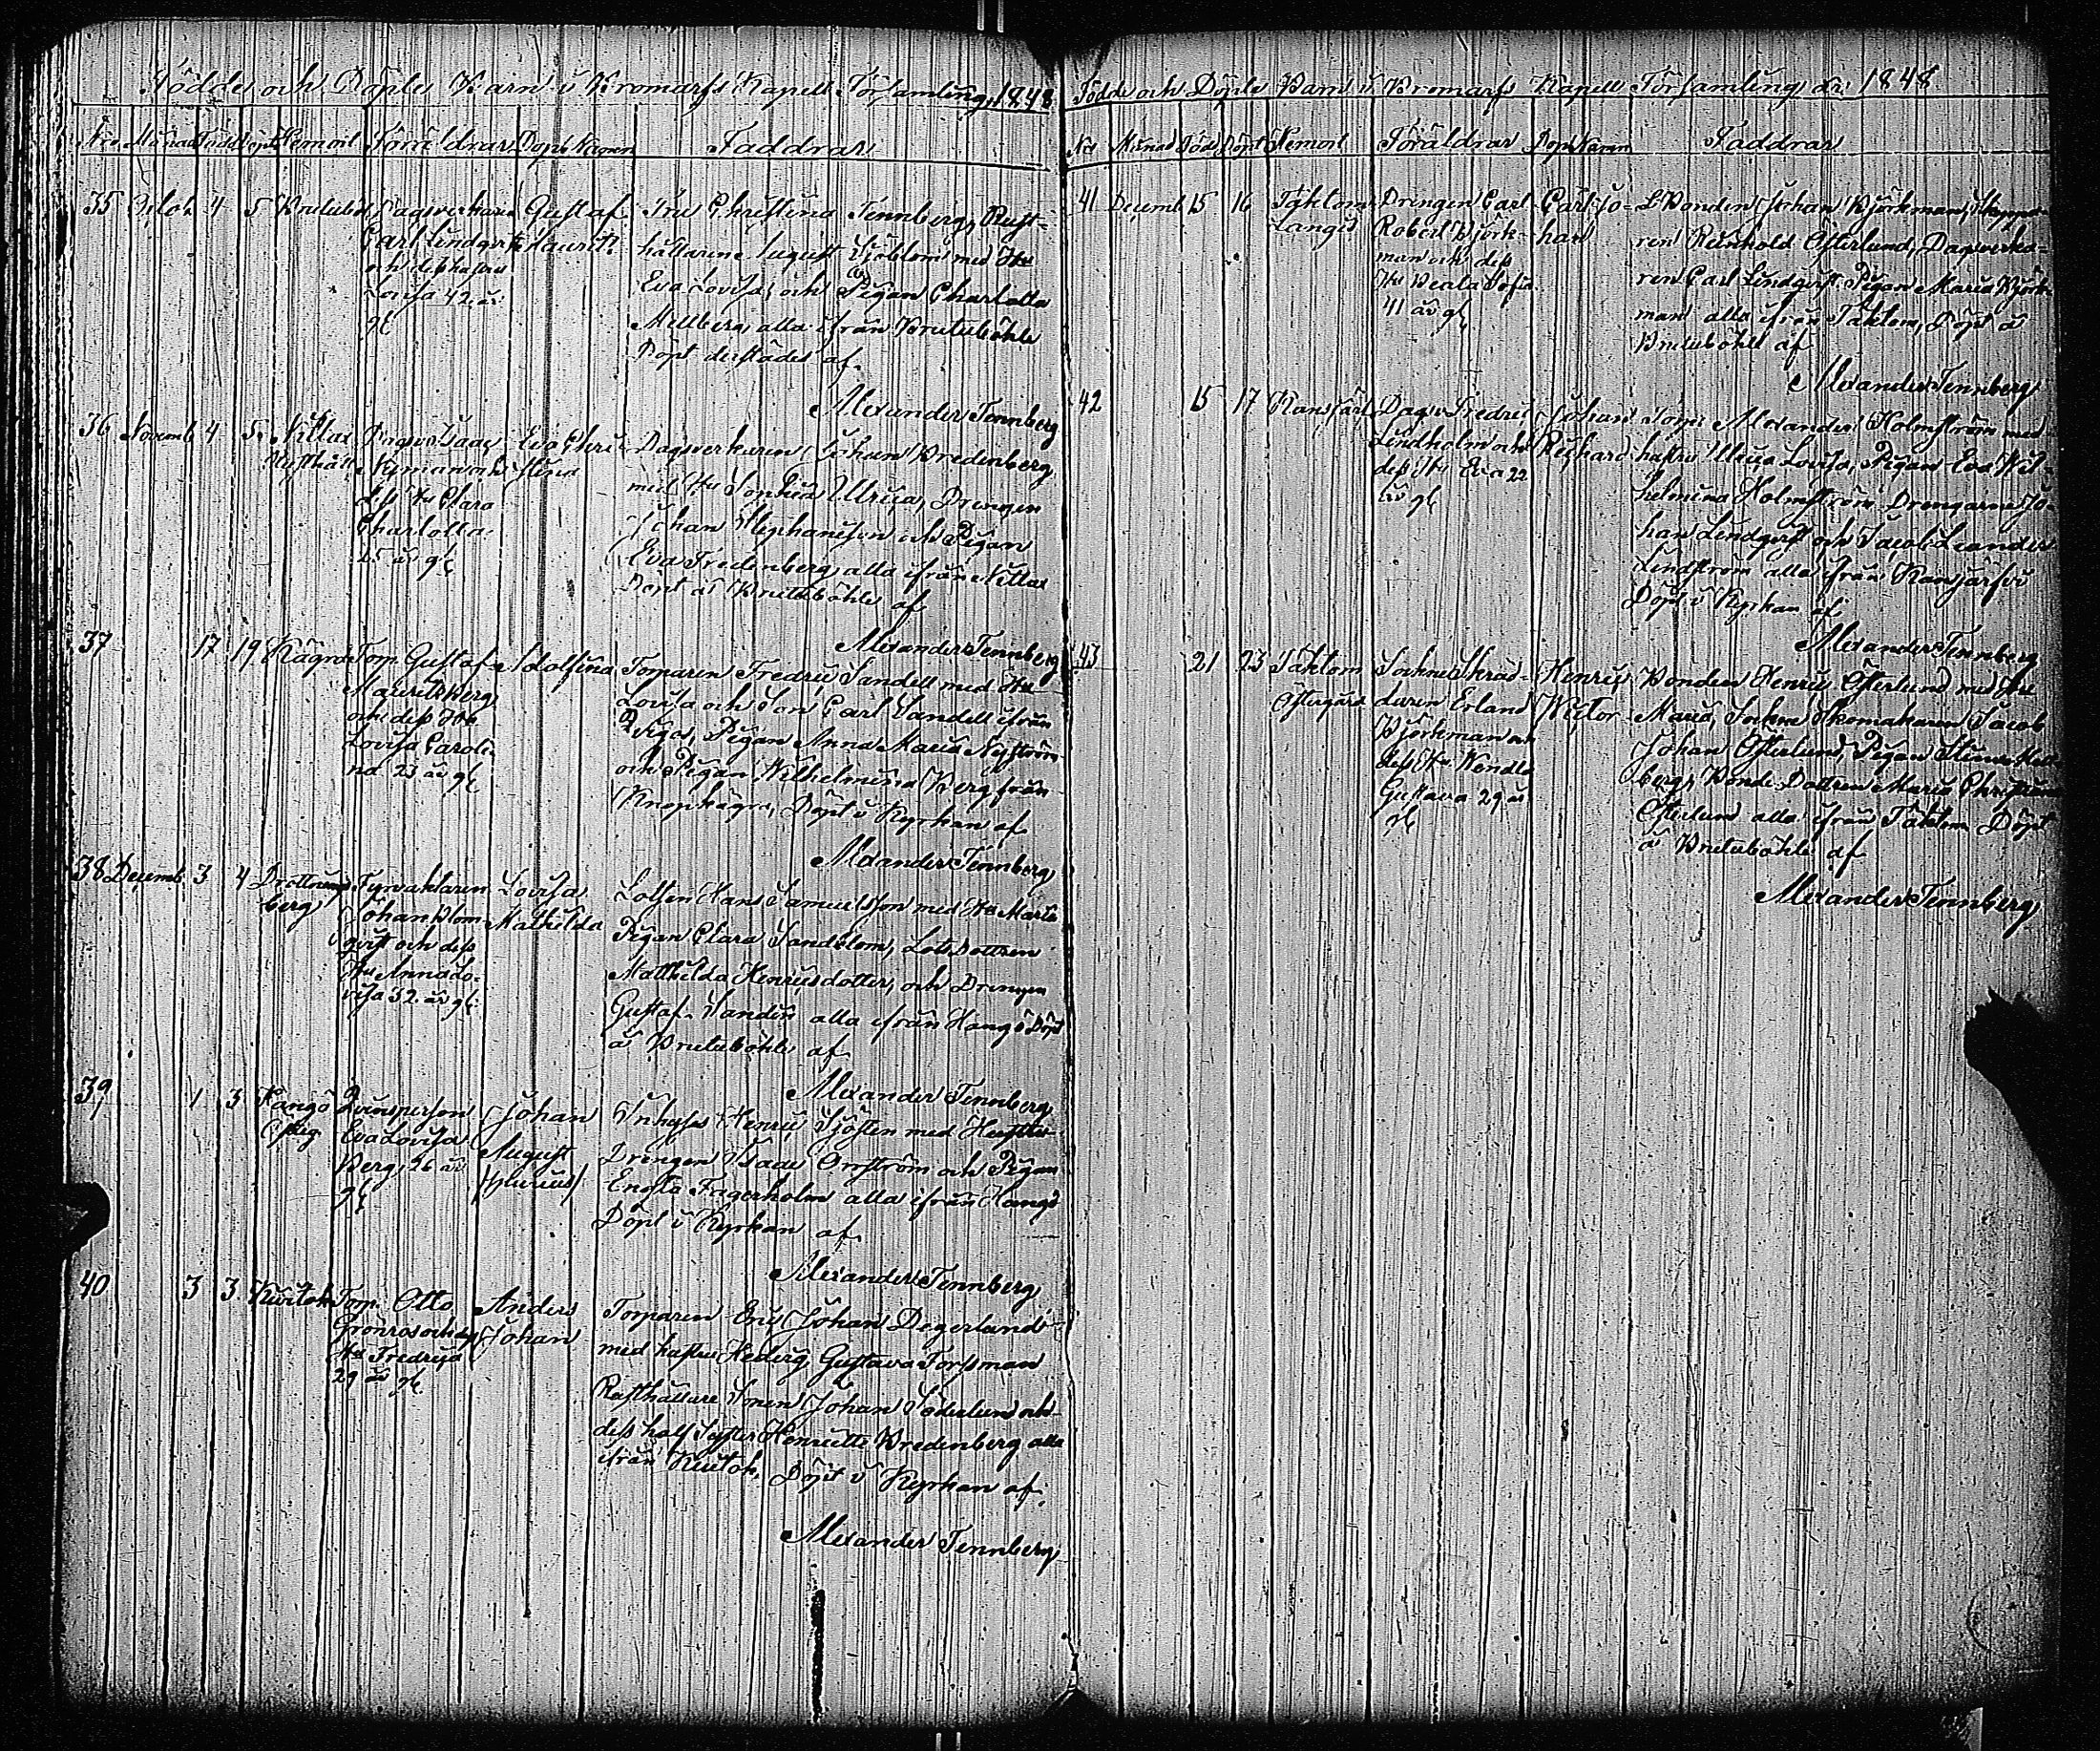 Födde och Döpte Barn i Bromarfs Kapell Församling, 1848
No Månad Född Döpt Hemort Föräldrar Dops Namn Faddrar
35 Octob 4 5
Gustaf
Lauritz
Carl Lindqvist
och dess hustru
Lovisa 42 år
gl
Fru Christina Tennberg, Rust=
hållarene August Sjöblom med Hu
Eva Lovisa, och Pigan Charlotta
Mellberg, alla ifrån
Döpt derstädes af
Alexander Tennberg
36 Novemb 4 5 Nittax
Dagsv Isaac
Nyman och
dess Hu Clara
Charlotta
25 år gl
Eva Chri-
stina
Dagsverkaren Johan Bredenberg
med Hu Sophia Ulrica, Drengen
Johan Stephansson och Pigan
Eva Fredenberg, alla ifrån Nittax
Döpt å af
Alexander Tennberg
37 17 19
Torp. Gustaf
Maurits Berg
och dess Hu
Lovisa Caroli-
na 23 år gl
Adolfina
Torparen Fredric Sandell med Hu
Lovisa och Son Carl Sandell ifrån
Pigan Anna Maria Nyström
och Pigan Wilhelmina Berg från
Döpt i Kyrkan af
Alexander Tennberg
38 Decemb. 3 4
berg
Fyrvaktaren
Johan Blom-
qvist och dess
Hu Anna Lo-
visa 32 år gl.
Lovisa
Mathilda
Lotsen Hans Samuelsson med Hu Maria
Pigan Clara Sandblom, Lots Dottren
Mathilda Henricsdotter, och Drengen
Gustaf Sandin alla ifrån Hangö Döpt
å af
Alexander Tennberg
39 1 3 Hangö
Qvinsperson
Eva Lovisa
Berg, 26 år
gl
Johan
August
/spurius/
Inhyses Henric Sjösten med Hustru
Drengen Isaac Orrström och Pigan
Engla Fagerholm alla ifrån Hangö
Döpt i Kyrkan af
Alexander Tennberg
40 3 3
Torp. Otto
Grönroos och dess
Hu Fredrica
29 år gl.
Anders
Johan
Torparen Eric Johan Degerlund
med hustru Hedvig Gustava Forssman
Rusthållare Sonen Johan Söderlund och
dess half Syster Henriette Bredenberg alla
ifrån Döpt i Kyrkan af
Alexander Tennberg
Födde och Döpte Barn i Bromarfs Kapell Församling år 1848
No Månad Född Döpt Hemort Föräldrar Dops Namn Faddrar
41 Decemb 15 16 Täktom
Langis
Drengen Carl
Robert Björk-
man och dess
Hu Beata Sofia
41 år gl
Carl Jo-
han
Bonden Johan Björkman,
ren Reinhold Österlund, Dagsverka-
ren Carl Lindqvist, Pigan Maria Björk-
man alla ifrån Täktom, Döpt å
af
Alexander Tennberg
42 15 17
Dagsv Fredric
Lindholm och
dess Hu Eva 22
år gl
Johan
Richard
Torp: Alexander Holmström med
hustru Ulrica Lovisa, Pigan Eva Wil-
helmina Holmström Drengarne Jo-
han Lindqvist och Jacob Leander
Lindström alla ifrån
Döpt i Kyrkan af
Alexander Tennberg
43 21 23 Täktom
Östergård
Sockne Skräd-
daren Erland
Björkman och
dess Hu Wendla
Gustava 29 år
gl
Henric
Wictor
Bonden Henric Österlund med Hu
Maria, Sockne Skomakaren Jacob
Johan Österlund, Pigan Stina Mell-
berg, Bonde Dottren Maria Christina
Österlund alla ifrån Täktom Döpt
å af
Alexander Tennberg